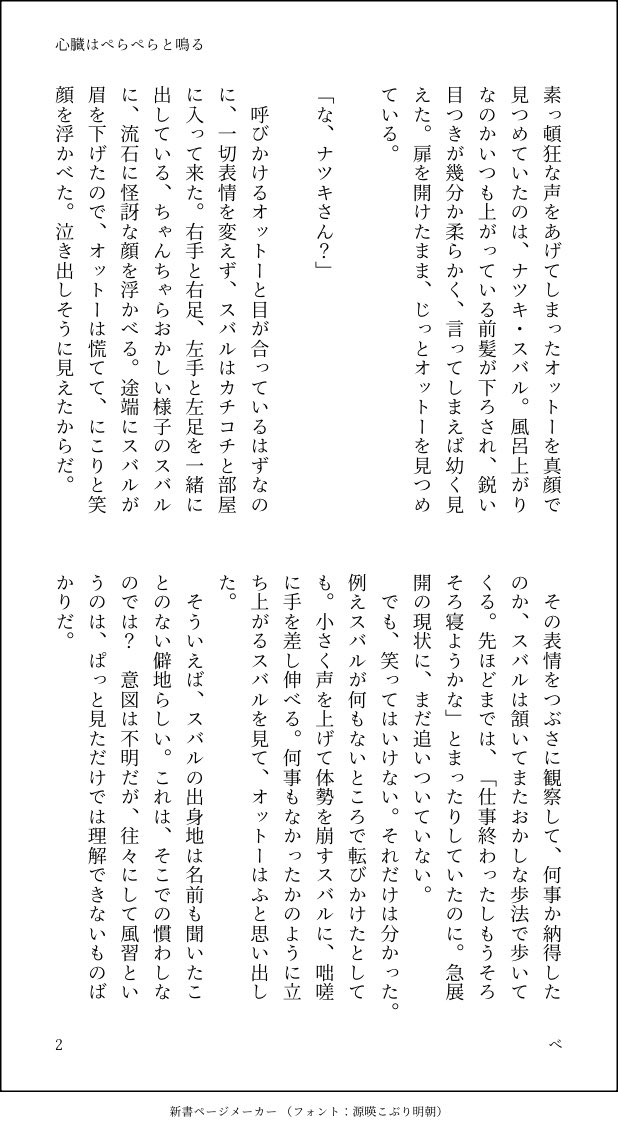 心臓はぺらぺらと鳴る
素っ頓狂な声をあげてしまったオットーを真顔で
見つめていたのは、ナツキ・スバル。風呂上がり
なのかいつも上がっている前髪が下ろされ、鋭い
目つきが幾分か柔らかく、言ってしまえば幼く見
えた。扉を開けたまま、じっとオットーを見つめ
ている。
「な、ナツキさん？」
呼びかけるオットーと目が合っているはずなの
に、一切表情を変えず、スバルはカチコチと部屋
に入って来た。右手と右足、左手と左足を一緒に
出している、ちゃんちゃらおかしい様子のスバル
に、流石に怪訝な顔を浮かべる。途端にスバルが
眉を下げたので、オットーは慌てて、にこりと笑
顔を浮かべた。泣き出しそうに見えたからだ。
その表情をつぶさに観察して、何事か納得した
のか、スバルは頷いてまたおかしな歩法で歩いて
くる。先ほどまでは、「仕事終わったしもうそろ
そろ寝ようかな」とまったりしていたのに。急展
開の現状に、まだ追いついていない。
でも、笑ってはいけない。それだけは分かった。
例えスバルが何もないところで転びかけたとして
も。小さく声を上げて体勢を崩すスバルに、咄嗟
に手を差し伸べる。何事もなかったかのように立
ち上がるスバルを見て、オットーはふと思い出し
た。
そういえば、スバルの出身地は名前も聞いたこ
とのない僻地らしい。これは、そこでの慣わしな
のでは？　意図は不明だが、往々にして風習とい
うのは、ぱっと見ただけでは理解できないものば
かりだ。
べ
2
新書ページメーカー（フォント：源暎こぶり明朝）